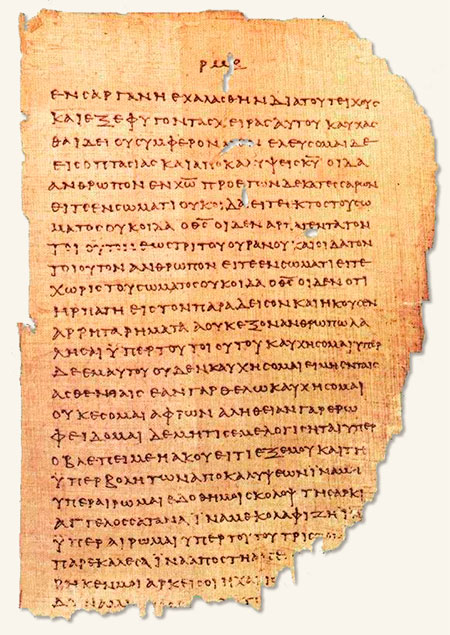 ΕΝϹΑΡΓΑΝΗΕΧΑΛΑϹΘΗΝΔΙΑΤΟΥΤΕΙΧΟΥϹ
ΚΑΙΕΞΕΦΥΓΟΝΤΑϹΧΕΙΡΑϹΑΥΤΟΥΚΑΥΧΑϹ
ΘΑΙΔΕΙΟΥϹΥΜΦΕΡΟΝΜΕΝΕΛΕΥϹΟΜΑΙΔΕ
ΕΙϹΟΠΤΑϹΙΑϹΚΑΙΑΠΟΚΑΛΥΨΕΙϹΚ̅Υ̅ΟΙΔΑ
ΑΝΘΡΩΠΟΝΕΝΧ̅Ω̅ΠΡΟΕΤΩΝΔΕΚΑΤΕϹϹΑΡΩΝ
ΕΙΤΕΕΝϹΩΜΑΤΙΟΥΚΟΙΔΑΕΙΤΕΕΚΤΟϹΤΟΥϹΩ
ΜΑΤΟϹΟΥΚΟΙΔΑΟΘ̅Ϲ̅ΟΙΔΕΝΑΡΠΑΓΕΝΤΑΤΟΝ
ΤΟΙΟΥΤΟΝΕΩϹΤΡΙΤΟΥΟΥΡΑΝΟΥΚΑΙΟΙΔΑΤΟΝ
ΤΟΙΟΥΤΟΝΑΝΘΡΩΠΟΝΕΙΤΕΕΝϹΩΜΑΤΙΕΙΤΕ
ΧΩΡΙϹΤΟΥϹΩΜΑΤΟϹΟΥΚΟΙΔΑΟΘ̅Ϲ̅ΟΙΔΕΝΟΤΙ
ΗΡΠΑΓΗΕΙϹΤΟΝΠΑΡΑΔΕΙϹΟΝΚΑΙΗΚΟΥϹΕΝ
ΑΡΡΗΤΑΡΗΜΑΤΑΑΟΥΚΕΞΟΝΑΝΘΡΩΠΩΛΑ
ΛΗϹΑΙΫΠΕΡΤΟΥΤΟΙΟΥΤΟΥΚΑΥΧΗϹΟΜΑΙΫΠΕΡ
ΔΕΕΜΑΥΤΟΥΟΥΔΕΝΚΑΥΧΗϹΟΜΑΙΕΙΜΗΕΝΤΑΙϹ
ΑϹΘΕΝΕΙΑΙϹΕΑΝΓΑΡΘΕΛΩΚΑΥΧΗϹΟΜΑΙ
ΟΥΚΕϹΟΜΑΙΑΦΡΩΝΑΛΗΘΕΙΑΝΓΑΡΕΡΩ
ΦΕΙΔΟΜΑΙΔΕΜΗΤΙϹΕΜΕΛΟΓΙϹΗΤΑΙΥΠΕΡ
ΟΒΛΕΠΕΙΜΕΗΑΚΟΥΕΙΤΙΕΞΕΜΟΥΚΑΙΤΗ
ΫΠΕΡΒΟΛΗΤΩΝΑΠΟΚΑΛΥΨΕΩΝΪΝΑΜΗ
ΥΠΕΡΑΙΡΩΜΑΙΕΔΟΘΗΜΟΙϹΚΟΛΟΨΤΗϹΑΡΚΙ
ΑΓΓΕΛΟϹϹΑΤΑΝΑΪΝΑΜΕΚΟΛΑΦΙΖΗΪ
ΫΠΕΡΑΙΡΩΜΑΙΥΠΕΡΤΟΥΤΟΥΤΡΙϹ
ΠΑΡΕΚΑΛΕϹΑΪΝΑΑΠΟϹΤΗ
ΡΗΚΕΝΜΟΙΑΡΚΕΙϹΟΙΗΧΑ